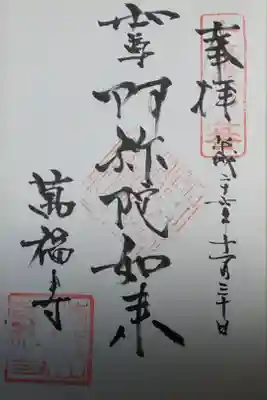 奉拝
平成二十六年十一月三十日
阿弥陀如来
萬福寺